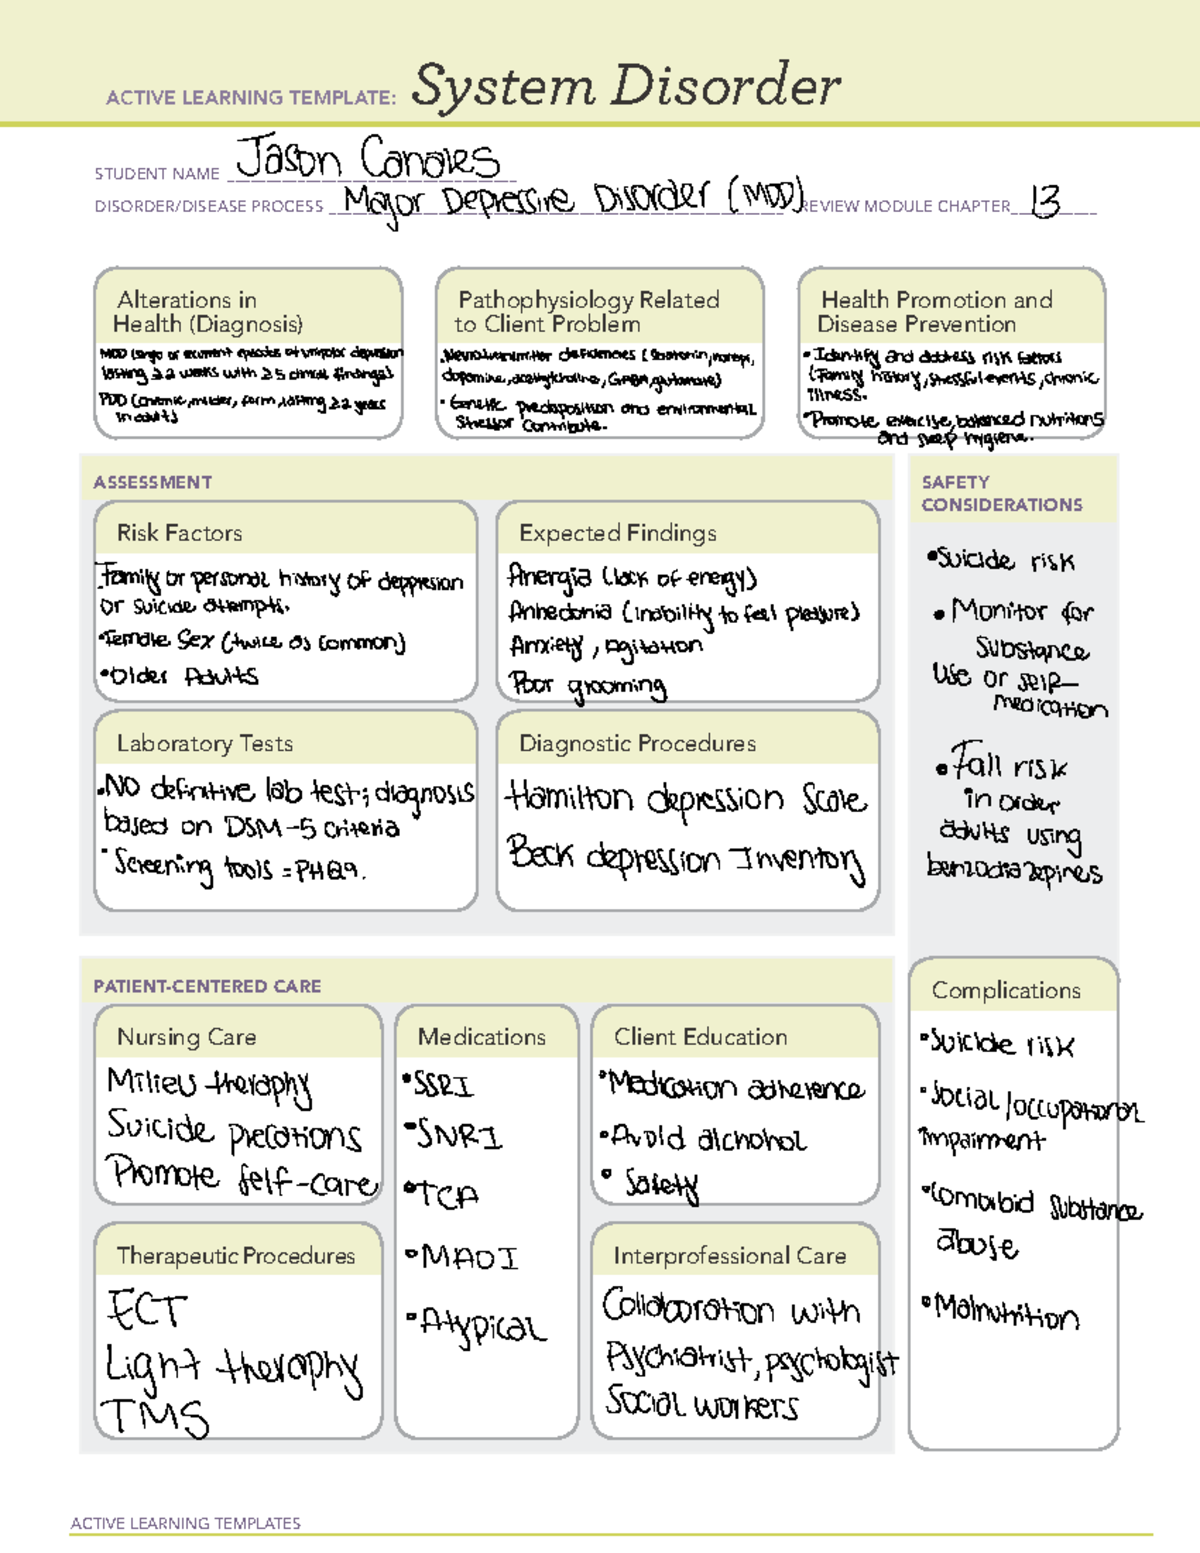 ACTIVE LEARNING TEMPLATE: System Disorder
STUDENT NAME Jason Canales
DISORDER/DISEASE PROCESS Major Depressive Disorder (MDD) REVIEW MODULE CHAPTER 13
Alterations in
Health (Diagnosis)
MDD (single or recurrent episodes of unipolar depression
lasting ≥2 weeks with ≥5 clinical findings)
PDD (chronic, milder, form, lasting ≥2 years
in adults)
Pathophysiology Related
to Client Problem
• Neurotransmitter deficiencies (serotonin, norepi,
dopamine, acetylcholine, GABA, glutamate)
• Genetic predisposition and environmental
stressor contribute.
Health Promotion and
Disease Prevention
• Identify and address risk factors
(Family history, stressful events, chronic
illness.
• Promote exercise, balanced nutritions
and sleep hygiene.
ASSESSMENT
Risk Factors
Family or personal history of deppresion
or suicide attempts.
• Female Sex (twice as common)
• Older Adults
Expected Findings
Anergia (lack of energy)
Anhedonia (inability to feel pleasure)
Anxiety, agitation
Poor grooming
Laboratory Tests
• NO definitive lab test; diagnosis
based on DSM-5 criteria
• Screening tools = PHQ9.
Diagnostic Procedures
Hamilton depression Scale
Beck depression Inventory
SAFETY
CONSIDERATIONS
• Suicide risk
• Monitor for
Substance
Use or self-
medication
• Fall risk
in order
adults using
benzodiazepines
PATIENT-CENTERED CARE
Nursing Care
Milieu theraphy
Suicide precations
Promote self-care
Medications
• SSRI
• SNRI
• TCA
• MAOI
• Atypical
Client Education
• Medication adherence
• Avoid alchohol
• Safety
Therapeutic Procedures
ECT
Light theraphy
TMS
Interprofessional Care
Collaboration with
Psychiatrist, psychologist
Social workers
Complications
• Suicide risk
• Social/occupational
impairment
• Comorbid substance
abuse
• Malnutrition
ACTIVE LEARNING TEMPLATES